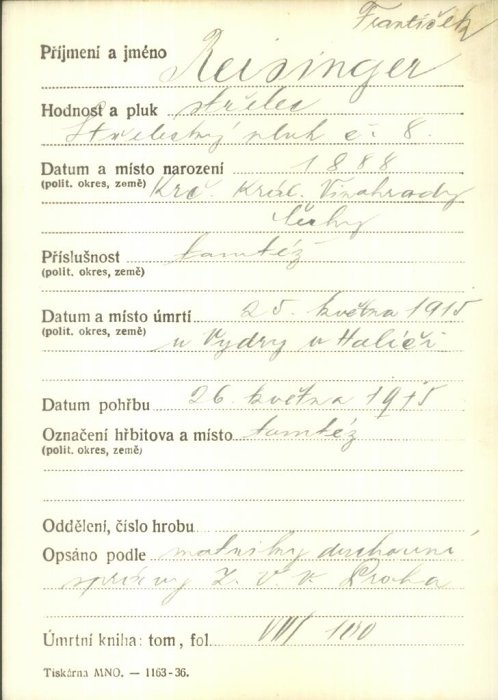 František
Příjmení a jméno Reisinger
Hodnost a pluk střelec
Střelecký pluk č. 8.
Datum a místo narození 1888
(polit. okres, země) Krč. Král. Vinohrady
Čechy
Příslušnost tamtéž
(polit. okres, země)
Datum a místo úmrtí 25. května 1915
(polit. okres, země) u Vydry v Haliči
Datum pohřbu 26. května 1915
Označení hřbitova a místo tamtéž
(polit. okres, země)
Oddělení, číslo hrobu
Opsáno podle matriky duchovní
správy Z. V. V. Praha
Úmrtní kniha: tom, fol. VIII/100
Tiskárna MNO. — 1163-36.